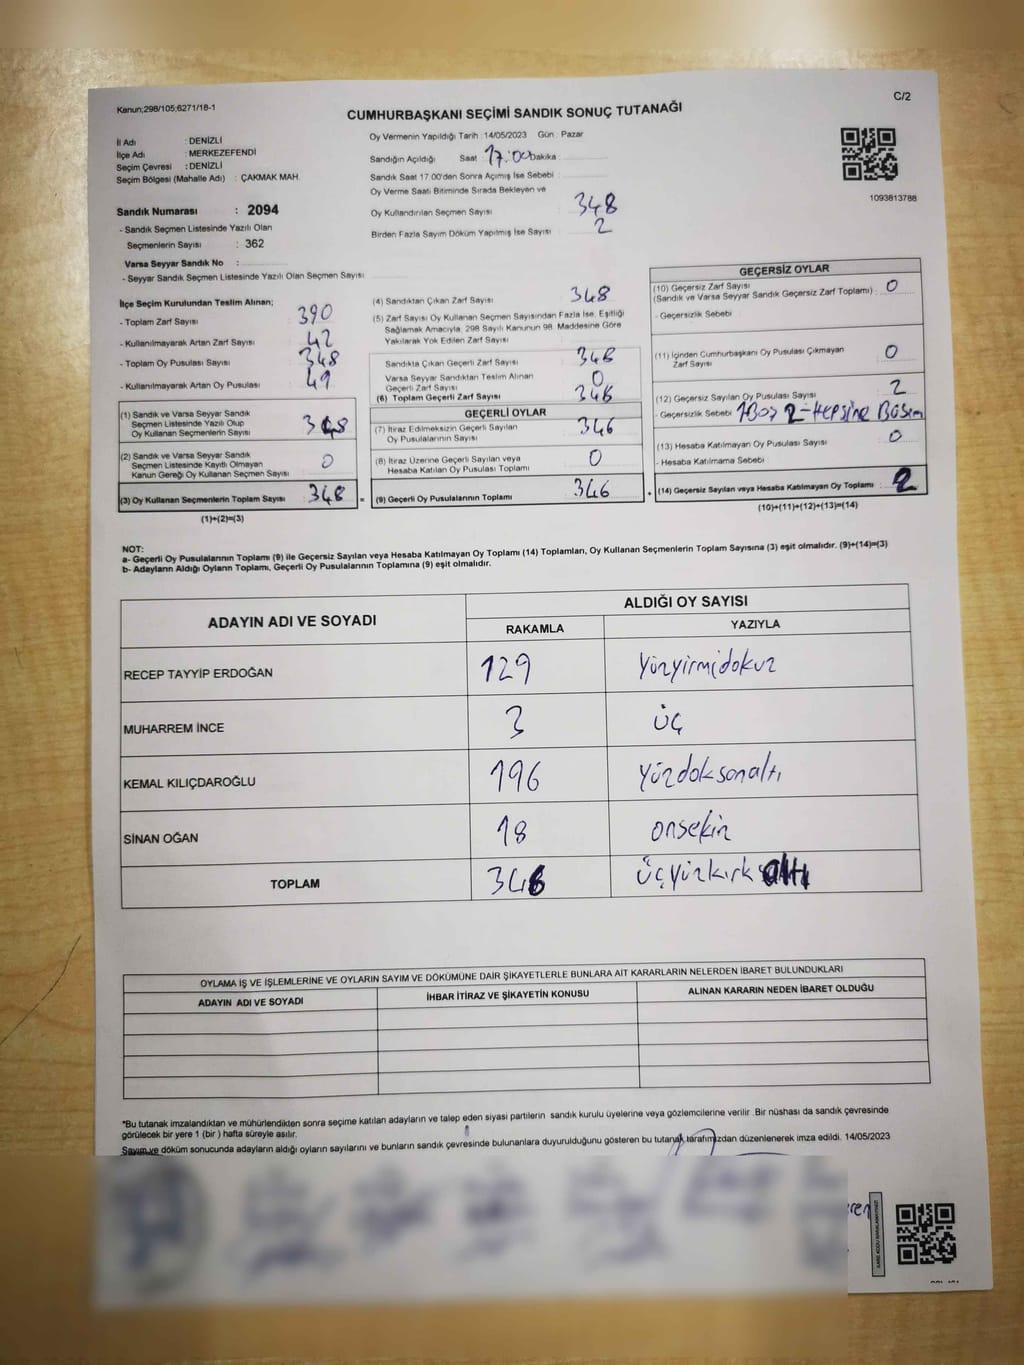 Kanun;298/105;6271/18-1
C/2
CUMHURBAŞKANI SEÇİMİ SANDIK SONUÇ TUTANAĞI
İl Adı : DENİZLİ
İlçe Adı : MERKEZEFENDİ
Seçim Çevresi : DENİZLİ
Seçim Bölgesi (Mahalle Adı) : ÇAKMAK MAH.
Oy Vermenin Yapıldığı Tarih : 14/05/2023 Gün : Pazar
Sandığın Açıldığı Saat : 17:00 Dakika :
Sandık Saat 17.00'den Sonra Açımış İse Sebebi :
Oy Verme Saati Bitiminde Sırada Bekleyen ve
Oy Kullandırılan Seçmen Sayısı 348
Birden Fazla Sayım Döküm Yapılmış İse Sayısı 2
1093813788
Sandık Numarası : 2094
- Sandık Seçmen Listesinde Yazılı Olan
Seçmenlerin Sayısı : 362
Varsa Seyyar Sandık No :
- Seyyar Sandık Seçmen Listesinde Yazılı Olan Seçmen Sayısı
İlçe Seçim Kurulundan Teslim Alınan;
- Toplam Zarf Sayısı 390
- Kullanılmayarak Artan Zarf Sayısı 42
- Toplam Oy Pusulası Sayısı 348
- Kullanılmayarak Artan Oy Pusulası 49
(1) Sandık ve Varsa Seyyar Sandık
Seçmen Listesinde Yazılı Olup
Oy Kullanan Seçmenlerin Sayısı 348
(2) Sandık ve Varsa Seyyar Sandık
Seçmen Listesinde Kayıtlı Olmayan
Kanun Gereği Oy Kullanan Seçmen Sayısı 0
(3) Oy Kullanan Seçmenlerin Toplam Sayısı 348
(1)+(2)=(3)
(4) Sandıktan Çıkan Zarf Sayısı 348
(5) Zarf Sayısı Oy Kullanan Seçmen Sayısından Fazla İse, Eşitliği
Sağlamak Amacıyla, 298 Sayılı Kanunun 98. Maddesine Göre
Yakılarak Yok Edilen Zarf Sayısı
Sandıkta Çıkan Geçerli Zarf Sayısı 346
Varsa Seyyar Sandıktan Teslim Alınan
Geçerli Zarf Sayısı 0
(6) Toplam Geçerli Zarf Sayısı 346
GEÇERLİ OYLAR
(7) İtiraz Edilmeksizin Geçerli Sayılan
Oy Pusulalarının Sayısı 346
(8) İtiraz Üzerine Geçerli Sayılan veya
Hesaba Katılan Oy Pusulası Toplamı 0
(9) Geçerli Oy Pusulalarının Toplamı 346
GEÇERSİZ OYLAR
(10) Geçersiz Zarf Sayısı
(Sandık ve Varsa Seyyar Sandık Geçersiz Zarf Toplamı) : 0
- Geçersizlik Sebebi
(11) İçinden Cumhurbaşkanı Oy Pusulası Çıkmayan
Zarf Sayısı 0
(12) Geçersiz Sayılan Oy Pusulası Sayısı 2
- Geçersizlik Sebebi 2-HEPSİNE
(13) Hesaba Katılmayan Oy Pusulası Sayısı 0
- Hesaba Katılmama Sebebi
(14) Geçersiz Sayılan veya Hesaba Katılmayan Oy Toplamı : 2
(10)+(11)+(12)+(13)=(14)
NOT:
a- Geçerli Oy Pusulalarının Toplamı (9) ile Geçersiz Sayılan veya Hesaba Katılmayan Oy Toplamı (14) Toplamları, Oy Kullanan Seçmenlerin Toplam Sayısına (3) eşit olmalıdır. (9)+(14)=(3)
b- Adayların Aldığı Oyların Toplamı, Geçerli Oy Pusulalarının Toplamına (9) eşit olmalıdır.
ADAYIN ADI VE SOYADI
ALDIĞI OY SAYISI
RAKAMLA YAZIYLA
RECEP TAYYİP ERDOĞAN 129 yüzyirmidokuz
MUHARREM İNCE 3 üç
KEMAL KILIÇDAROĞLU 196 yüzdoksanaltı
SİNAN OĞAN 18 onsekiz
TOPLAM 346 üçyüzkırkaltı
OYLAMA İŞ VE İŞLEMLERİNE VE OYLARIN SAYIM VE DÖKÜMÜNE DAİR ŞİKAYETLERLE BUNLARA AİT KARARLARIN NELERDEN İBARET BULUNDUKLARI
ADAYIN ADI VE SOYADI İHBAR İTİRAZ VE ŞİKAYETİN KONUSU ALINAN KARARIN NEDEN İBARET OLDUĞU
*Bu tutanak imzalandıktan ve mühürlendikten sonra seçime katılan adayların ve talep eden siyasi partilerin sandık kurulu üyelerine veya gözlemcilerine verilir. Bir nüshası da sandık çevresinde
görülecek bir yere 1 (bir) hafta süreyle asılır.
Sayım ve döküm sonucunda adayların aldığı oyların sayılarını ve bunların sandık çevresinde bulunanlara duyurulduğunu gösteren bu tutanak tarafımızdan düzenlenerek imza edildi. 14/05/2023